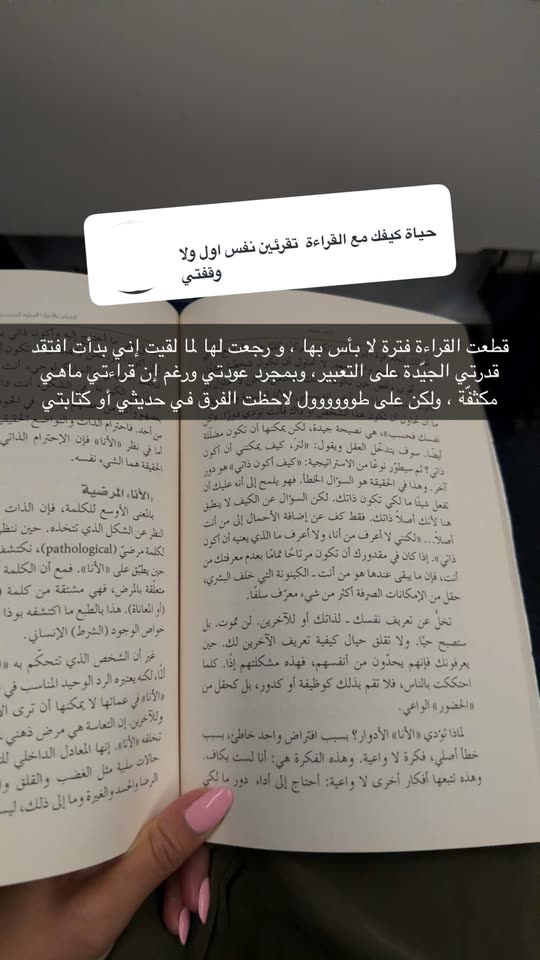 حياة كيفك مع القراءة تقرئين نفس اول ولا
وقفتي
قطعت القراءة فترة لا بأس بها ، و رجعت لها لما لقيت إني بدأت افتقد
قدرتي الجيّدة على التعبير ، وبمجرد عودتي ورغم إن قراءتي ماهي
مكثفّة ، ولكن على طووووووول لاحظت الفرق في حديثي أو كتابتي
نفسك فحسب»، هي نصيحة جيدة، لكنها يمكنها أن تكون مضلّلة
أيضًا. سوف يتدخّل العقل ويقول: «لنرَ، كيف يمكنني أن أكون
ذاتي؟ ثم سيطوّر نوعًا من الاستراتيجية: «كيف أكون ذاتي» هو دور
آخر. وهذا في الحقيقة هو السؤال الخطأ. فهو يلمح إلى أنه عليك أن
تفعل شيئًا ما لكي تكون ذاتك. لكن السؤال عن الكيف لا ينطبق
هنا لأنك أصلاً ذاتك. فقط كف عن إضافة الأحمال إلى من أنت
أصلاً... «لكنني لا أعرف من أنا، ولا أعرف ما الذي يعنيه أن أكون
ذاتي». إذا كان في مقدورك أن تكون مرتاحًا تمامًا بعدم معرفتك من
أنت، فإن ما يبقى عندها هو من أنت ـ الكينونة التي خلف البشري،
حقل من الإمكانات الصرفة أكثر من شيء معرّف سلفًا.
تخلَّ عن تعريف نفسك ـ لذاتك أو للآخرين. لن تموت. بل
ستصبح حيًا. ولا تقلق حيال كيفية تعريف الآخرين لك. حين
يعرفونك فإنهم يحدّون من أنفسهم، فهذه مشكلتهم إذًا. كلما
احتككت بالناس، فلا تقم بذلك كوظيفة أو كدور، بل كحقل من
«الحضور» الواعي.
لماذا تؤدي «الأنا» الأدوار؟ بسبب افتراض واحد خاطئ، بسبب
خطأ أصلي، فكرة لا واعية. وهذه الفكرة هي: أنا لست بكاف.
وهذه تتبعها أفكار أخرى لا واعية: أحتاج إلى أداء دور ما لكي
من أحد. فاحترام الذات والتواضع
أما في نظر «الأنا» فإن الاحترام الذاتي
الحقيقة هما الشيء نفسه.
«الأنا» المرضية
بالمعنى الأوسع للكلمة، فإن الذات
النظر عن الشكل الذي تتخذه. حين ننظر
لكلمة مرضيّ (pathological)، نكتشف
حين يطبّق على «الأنا». فمع أن الكلمة
متعلقة بالمرض، فهي مشتقة من كلمة
(أو المعاناة). هذا بالطبع ما اكتشفه بوذا
خواص الوجود (الشرط) الإنساني.
غير أن الشخص الذي تتحكّم به
ألمًا، لكنه يعتبره الرد الوحيد المناسب في
«الأنا» في عماتها لا يمكنها أن ترى
وللآخرين. إن التعاسة هي مرض ذهني
تخلقه «الأنا». إنها المعادل الداخلي
حالات سلبية مثل الغضب والقلق
الرضا والحسد والغيرة وما إلى ذلك، ليس